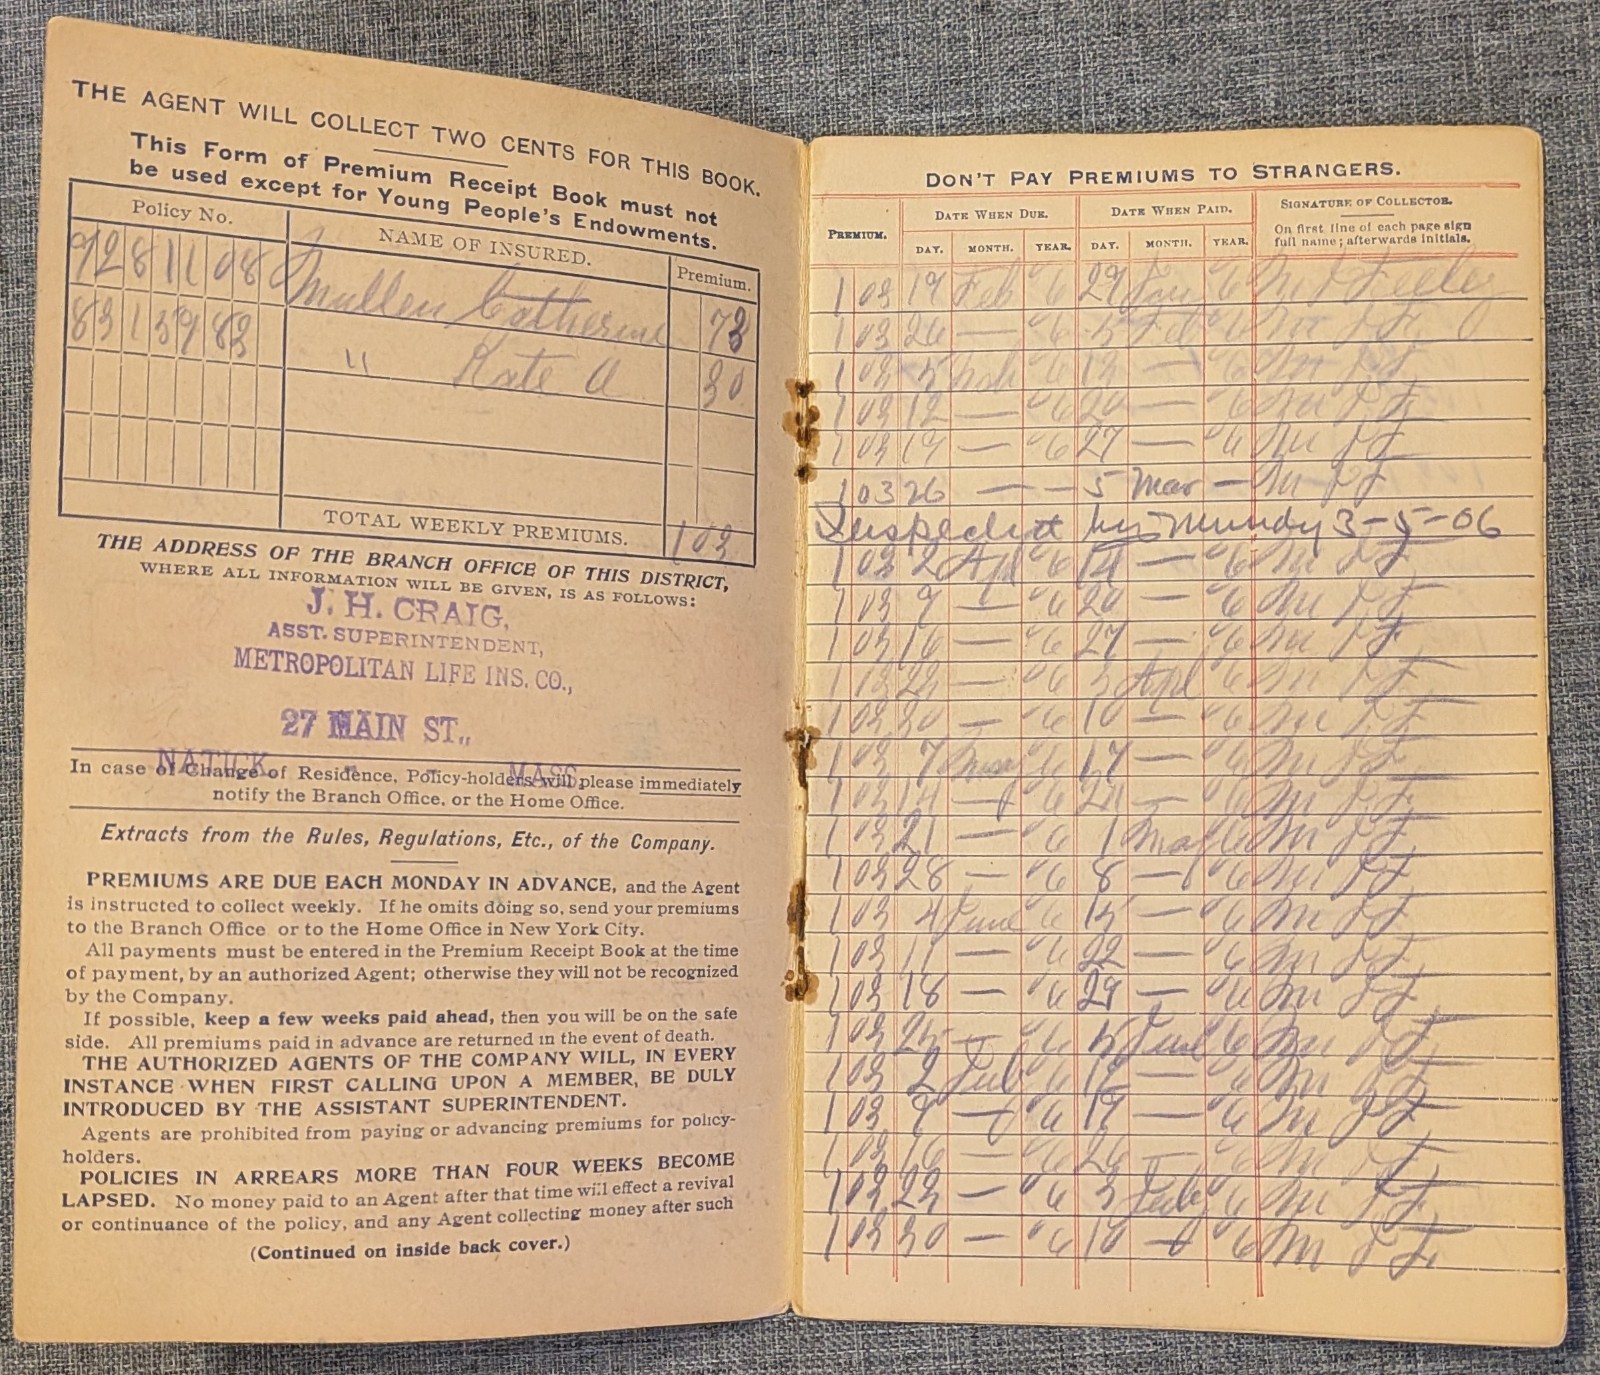 THE AGENT WILL COLLECT TWO CENTS FOR THIS BOOK.
This Form of Premium Receipt Book must not
be used except for Young People's Endowments.
Policy No. NAME OF INSURED. Premium.
9281108 Mullen Catherine 73
8313983 " Kate A 30
TOTAL WEEKLY PREMIUMS. 103
THE ADDRESS OF THE BRANCH OFFICE OF THIS DISTRICT,
WHERE ALL INFORMATION WILL BE GIVEN, IS AS FOLLOWS:
J. H. CRAIG,
ASST. SUPERINTENDENT,
METROPOLITAN LIFE INS. CO.,
27 MAIN ST.,
NATICK - - MASS.
In case of Change of Residence, Policy-holders will please immediately
notify the Branch Office, or the Home Office.
Extracts from the Rules, Regulations, Etc., of the Company.
PREMIUMS ARE DUE EACH MONDAY IN ADVANCE, and the Agent
is instructed to collect weekly. If he omits doing so, send your premiums
to the Branch Office or to the Home Office in New York City.
All payments must be entered in the Premium Receipt Book at the time
of payment, by an authorized Agent; otherwise they will not be recognized
by the Company.
If possible, keep a few weeks paid ahead, then you will be on the safe
side. All premiums paid in advance are returned in the event of death.
THE AUTHORIZED AGENTS OF THE COMPANY WILL, IN EVERY
INSTANCE WHEN FIRST CALLING UPON A MEMBER, BE DULY
INTRODUCED BY THE ASSISTANT SUPERINTENDENT.
Agents are prohibited from paying or advancing premiums for policy-
holders.
POLICIES IN ARREARS MORE THAN FOUR WEEKS BECOME
LAPSED. No money paid to an Agent after that time will effect a revival
or continuance of the policy, and any Agent collecting money after such
(Continued on inside back cover.)
DON'T PAY PREMIUMS TO STRANGERS.
PREMIUM. DATE WHEN DUE. DATE WHEN PAID. SIGNATURE OF COLLECTOR.
DAY. MONTH. YEAR. DAY. MONTH. YEAR. On first line of each page sign
full name; afterwards initials.
103 19 Feb 6 29 Jan 6
103 26 — 6 5 Feb 6
103 5 Mch 6 13 — 6
103 12 — 6 20 — 6
103 19 — 6 27 — 6
103 26 — — 5 Mar —
Inspected 3-5-06
103 2 Apl 6 14 — 6
103 9 — 6 20 — 6
103 16 — 6 27 — 6
103 23 — 6 3 Apl 6
103 30 — 6 10 — 6
103 7 May 6 17 — 6
103 14 — 6 24 — 6
103 21 — 6 1 May 6
103 28 — 6 8 — 6
103 4 June 6 15 — 6
103 11 — 6 22 — 6
103 18 — 6 29 — 6
103 25 — 6 5 June 6
103 2 July 6 12 — 6
103 9 — 6 19 — 6
103 16 — 6 26 — 6
103 23 — 6 3 July 6
103 30 — 6 10 — 6